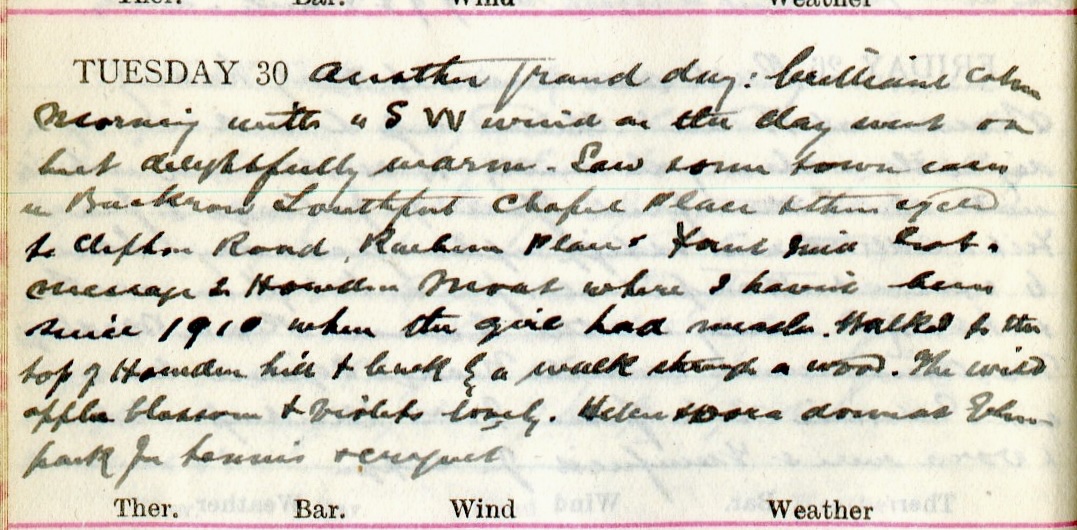 Ther. Bar. Wind Weather
TUESDAY 30 Another grand day: brilliant calm
morning with a S W wind as the day went on
but delightfully warm. Saw some town cases
in Bankrow Southport Chapel Place & then cycled
to Clifton Road,
message to Howden Moat where I haven't been
since 1910 when the girl had measles. Walked to the
top of Howden hill & back by a walk through a wood. The wild
apple blossom & violets lovely. Helen down at
park for tennis & croquet
Ther. Bar. Wind Weather